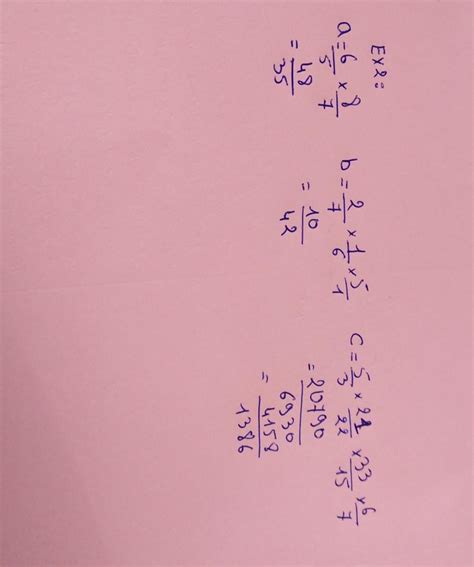 Ex2:
a = 6/5 × 8/7
= 48/35
b = 2/7 × 1/6 × 5/1
= 10/42
c = 5/3 × 21/22 × 33/15 × 6/7
= 20790/6930
= 4158/1386